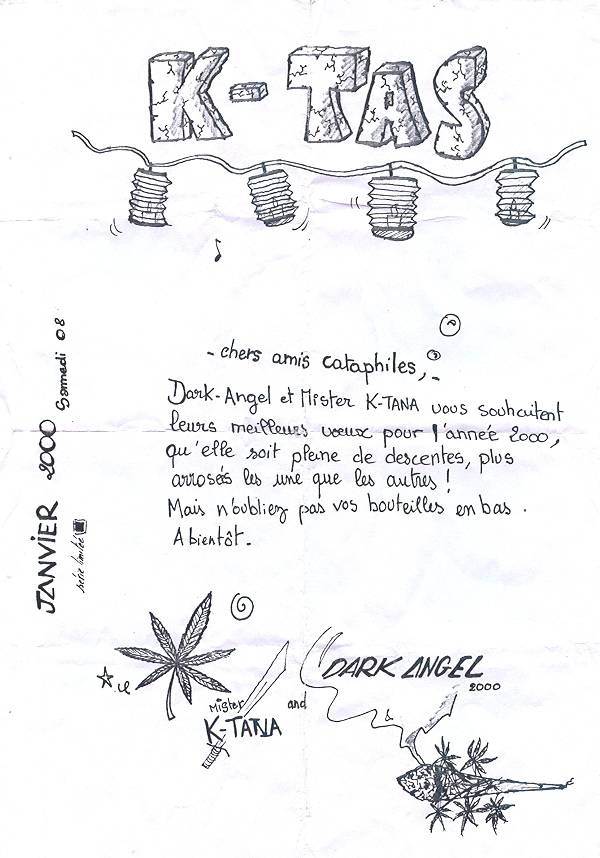 K-TAS
- chers amis cataphiles, -
Dark-Angel et Mister K-TANA vous souhaitent
leurs meilleurs vœux pour l'année 2000,
qu'elle soit pleine de descentes, plus
arrosés les une que les autres !
Mais n'oubliez pas vos bouteilles en bas .
A bientôt.
JANVIER 2000 Samedi 08
série limitée
Mister
K-TANA
and
DARK ANGEL
2000